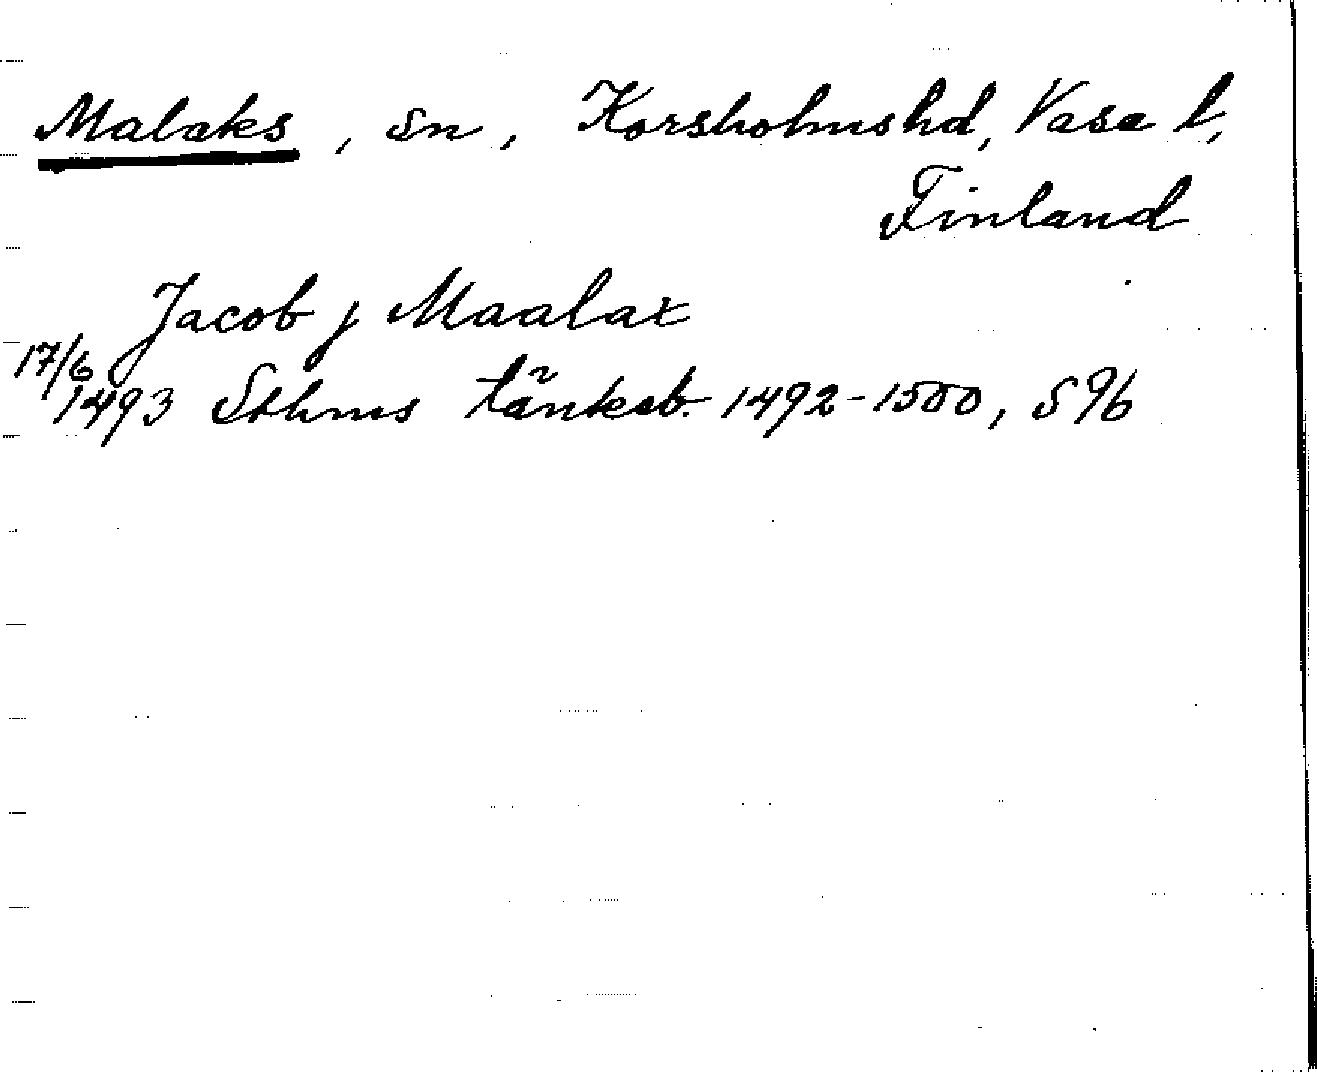 Malaks, sn, Korsholms hd, Vasa l,
Finland
Jacob j Maalax
17/6 1493 Sthms tänkeb. 1492-1500, s 96